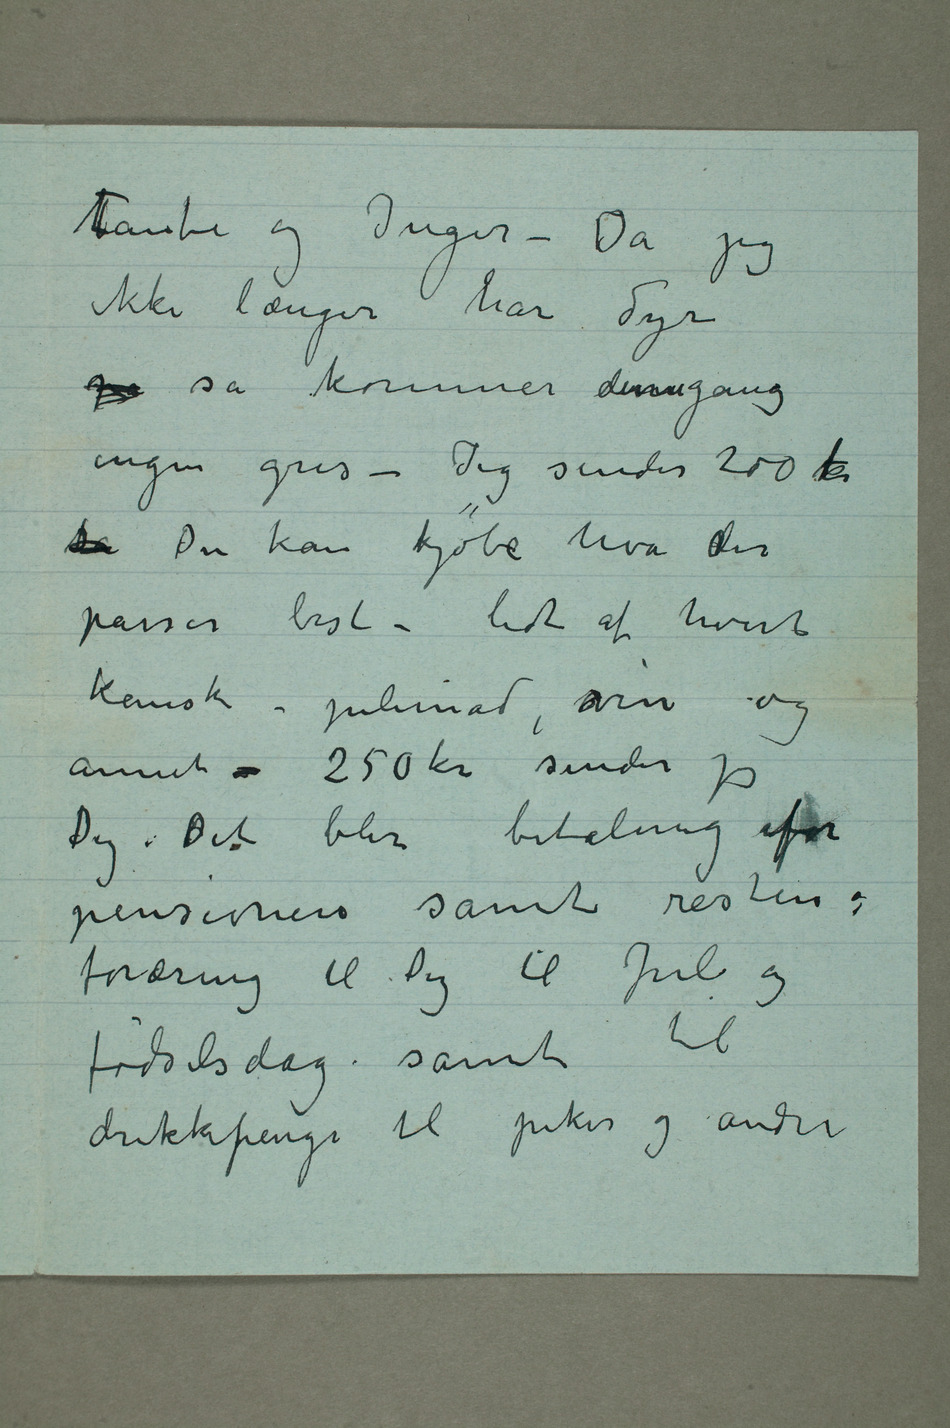 Tante og Inger – Da jeg
ikke længer har Dyr
så kommer dennegang
ingen gris – Jeg sender 200 kr
Du kan kjöbe hva der
passer best – lidt af hvert
kanske – julemad, vin og
annet – 250 kr sender jeg
Dig. Det blir betaling for
pensionen samt resten
foræring til Dig til Jul og
födselsdag. samt til
drikkepenge til piker og andre